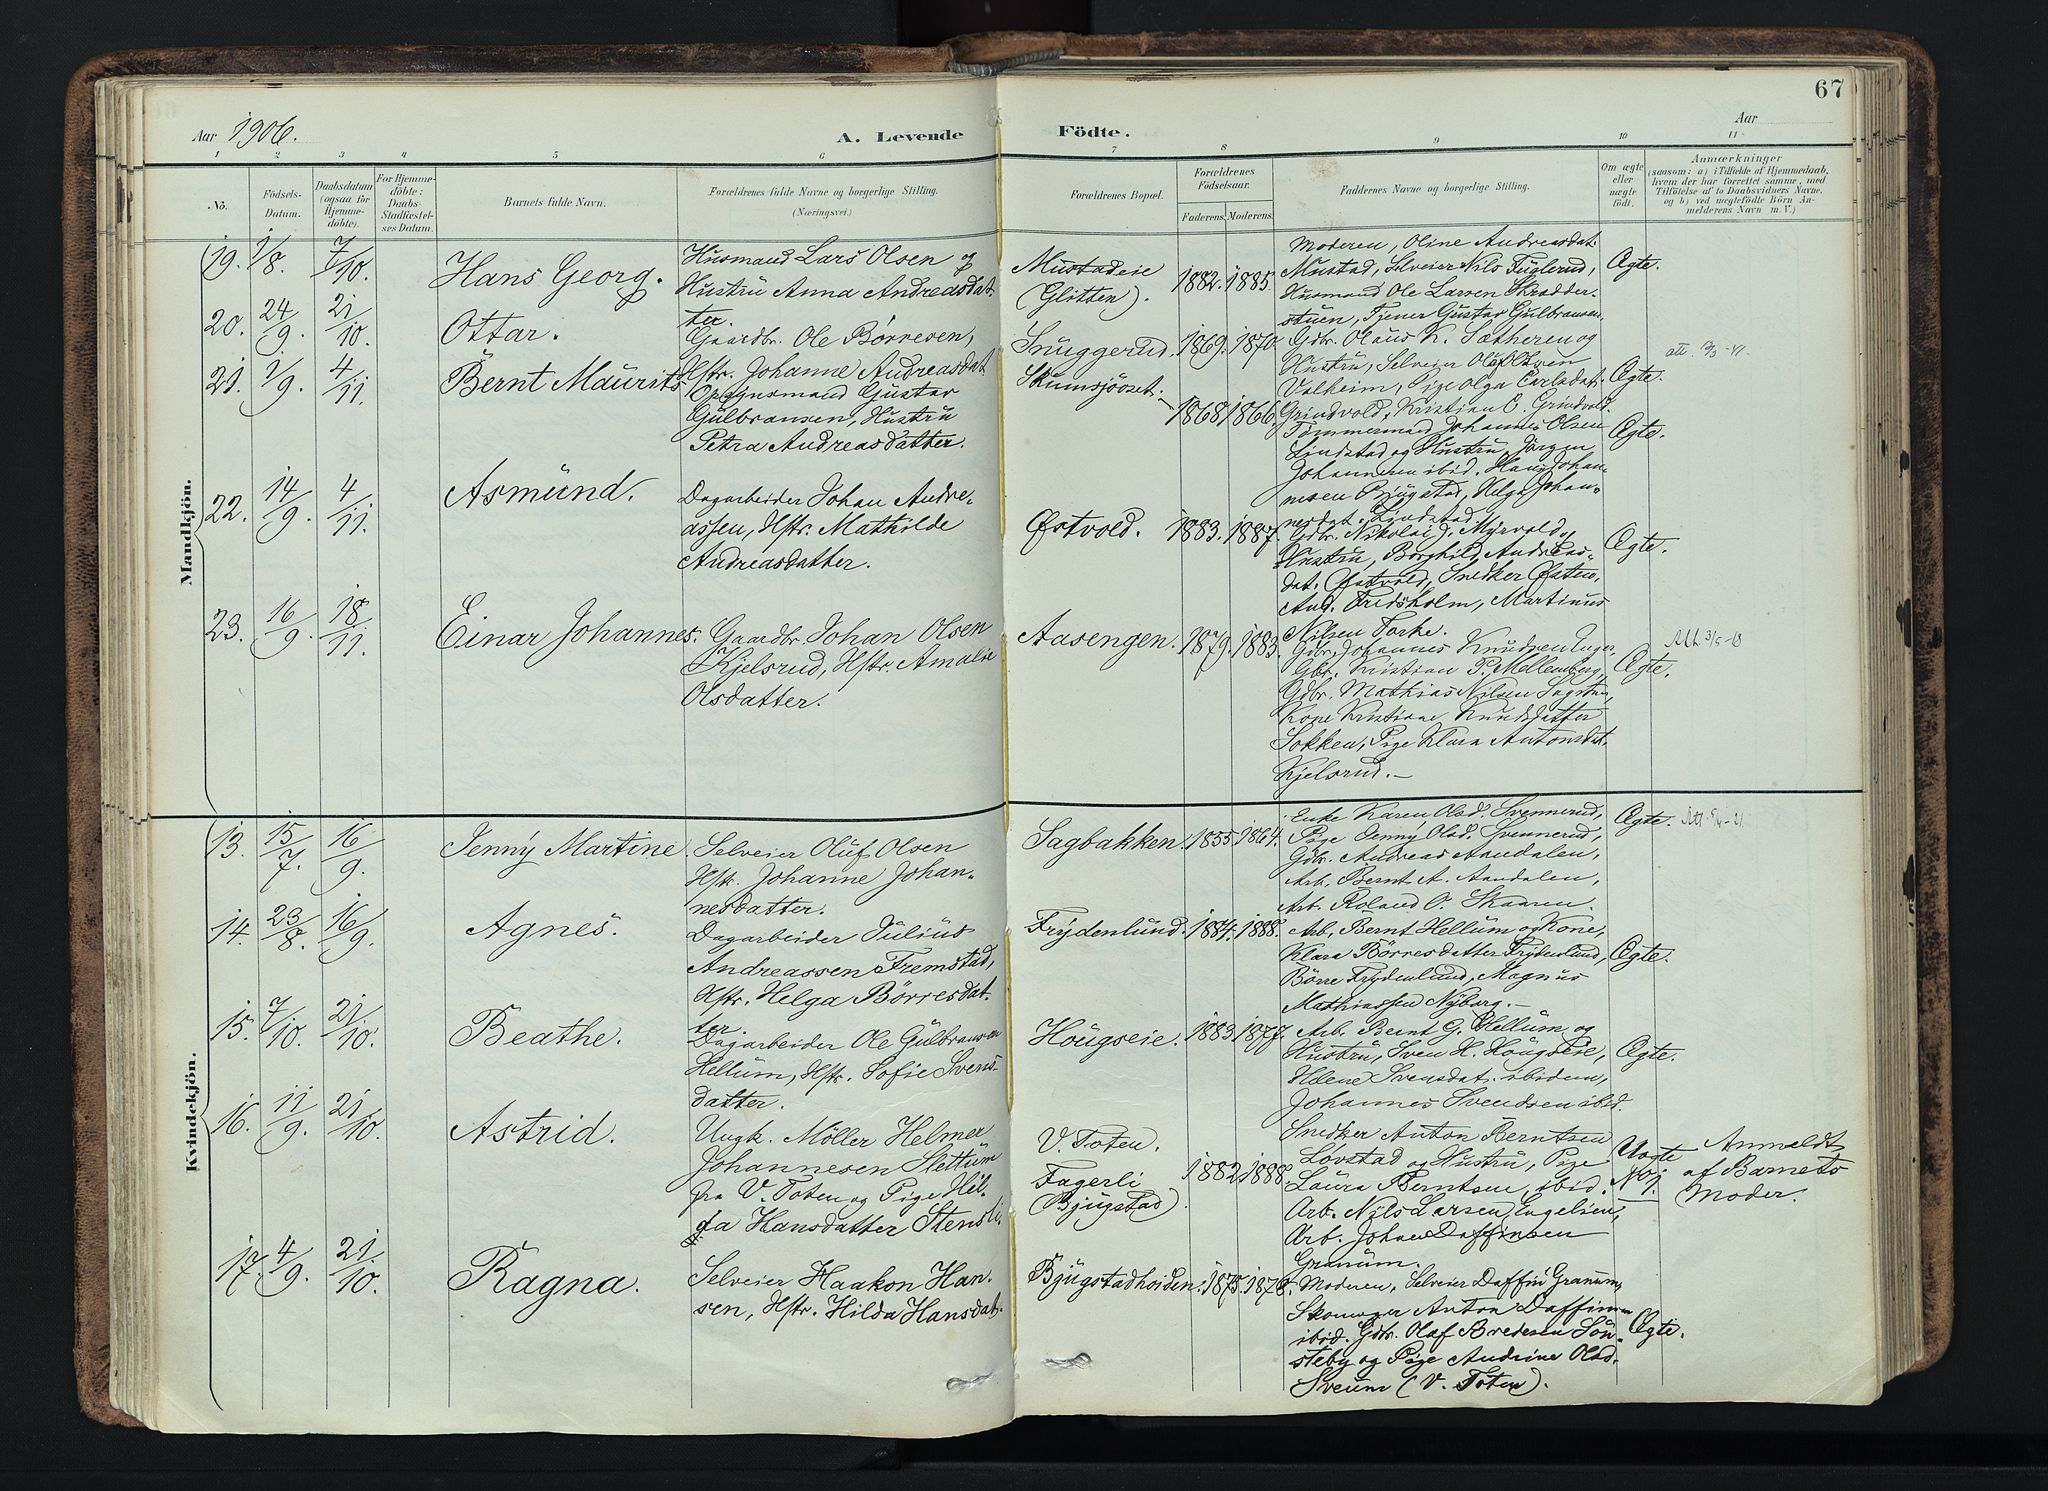 67
Aar 1906.
A. Levende Födte.
Aar
1 2 3 4 5 6 7 8 9 10 11
No.
Födsels-Datum.
Daabsdatum (ogsaa for Hjemmedöbte).
For Hjemmedöbte: Daabs-Stadfæstelses Datum.
Barnets fulde Navn.
Forældrenes fulde Navne og borgerlige Stilling.
(Næringsvei.)
Forældrenes Bopæl.
Forældrenes Födselsaar.
Faderens. Moderens.
Faddernes Navne og borgerlige Stilling.
Om ægte eller uægte födt.
Anmærkninger
(saasom: a) i Tilfælde af Hjemmedaab,
hvem der har forrettet samme, med
Tilföielse af to Daabsvidners Navne.
og b) ved uægtefödte Börn Anmelderens Navn m. V.)
Mandkjön.
19. 1/8. 7/10. Hans Georg.
Husmand Lars Olsen og
Hustru Anna Andreasdat-
ter.
Mustadeie
(Glitten).
1882. 1885.
Moderen, Oline Andreasdat.
Mustad, Selveier Nils Fuglerud,
Husmand Ole Larsen Skrædder-
stuen, Tjener Gustav Gulbransen.
Ægte.
20. 24/9. 21/10. Ottar.
Gaardbr. Ole Børresen,
Hstr. Johanne Andreasdat.
Snuggerud. 1869. 1870
Gdbr. Olaus K. Sætheren og
Hustru, Selveier Olaf Olsen
Valheim, Pige Olga Carlsdat.
Grindvold, Kristian C. Grindvold.
Ægte.
21. 1/9. 4/11. Bernt Maurits
Opsynsmand Gustav
Gulbransen, Hustru
Petra Andreasdatter.
Skumsjöset.
1868 1866.
Tömmermand Johannes Olsen
Lindstad og Hustru, Jörgen
Johannesen ibid. Hans Johan-
nesen Bjugstad, Helga Johan-
nesdat. Lindstad
Ægte.
22. 14/9. 4/11. Asmund.
Dagarbeider Johan Andre-
assen, Hstr. Mathilde
Andreasdatter.
Østvold. 1883. 1887.
Gdbr. Nikolai J. Myrvold og
Hustru, Borghild Andreas-
dat. Østvold, Snedker Østen
Aug. Fredsholm, Martinus
Nilsen Torke.
Ægte.
23. 16/9. 18/11. Einar Johannes.
Gaardbr. Johan Olsen
Kjelsrud, Hstr. Amalie
Olsdatter.
Aasengen. 1879. 1883.
Gdbr. Johannes Knudsen
Gbr. Kristian P. Mellemberg,
Gdbr. Mathias Nilsen Sagstu,
Kone Kristiane Knudsdatter
Sokken, Pige Klara Antonsdat.
Kjelsrud.
Ægte.
Att. 3/5-18
Kvindekjön.
13. 15/7. 16/9. Jenny Martine
Selveier Oluf Olsen
Hstr. Johanne Johan-
nesdatter.
Sagbakken. 1855 1864.
Enke Karen Olsd. Svennerud,
Pige Jenny Olsd. Svennerud,
Gdbr. Andreas Aandalen,
Arb. Bernt A. Aandalen,
Arb. Roland O. Skaaren.
Ægte.
14. 23/8. 16/9. Agnes.
Dagarbeider Julius
Andreassen Fremstad,
Hstr. Helga Börresdat-
ter.
Frydenlund. 1884. 1888.
Arb. Bernt Hellum og Kone,
Klara Börresdatter Frydenlund,
Börre Frydenlund, Magnus
Mathiassen Nyborg.
Ægte.
15. 7/10. 21/10. Beathe.
Dagarbeider Ole Gulbransen
Hellum, Hstr. Sofie Svens-
datter.
Hougseie. 1883 1877.
Arb. Bernt G. Hellum og
Hustru, Sven H. Hougseie,
Helene Svensdat. ibidem,
Johannes Svendsen ibid.
Ægte.
16. 11/9. 21/10. Astrid.
Ungk. Möller Helmer
Johannesen Slettum
fra V. Toten og Pige Hel-
ga Hansdatter Stensli.
V. Toten.
Fagerli
(Bjugstad).
1882 1888.
Snedker Anton Berntsen
Lövstad og Hustru, Pige
Laura Berntsen, ibid.
Arb. Nils Larsen Engelien,
Arb. Johan Daffinsen
Granum.
Uægte
No 1.
Anmeldt
af Barnets
Moder.
17. 4/9. 21/10. Ragna.
Selveier Haakon Han-
sen, Hstr. Hilda Hansdat.
Bjugstadhoiden. 1875. 1878.
Moderen, Selveier Daffin Granum,
Skomager Anton Daffinsen
ibid. Gdbr. Olaf Bredesen Sön-
steby og Pige Andrine Olsd.
Sveum (V. Toten).
Ægte.